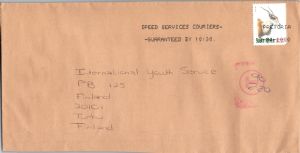 SPEED SERVICES COURIERS-
-GUARANTEED BY 10:30.
PRETORIA
International Youth Service
PB 125
Finland
20101
Turku
Finland